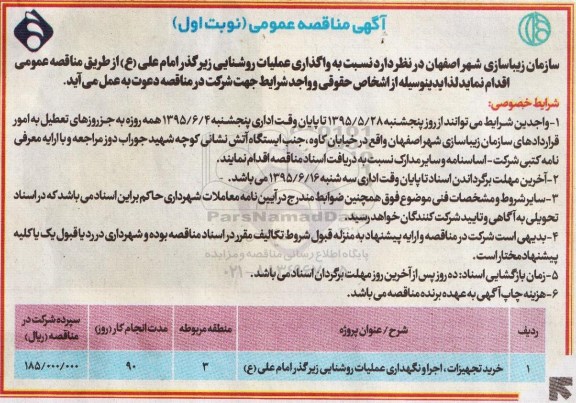 آگهی مناقصه عمومی (نوبت اول)
سازمان زیباسازی شهر اصفهان در نظر دارد نسبت به واگذاری عملیات روشنایی زیر گذر امام علی (ع) از طریق مناقصه عمومی
اقدام نماید لذا بدینوسیله از اشخاص حقوقی و واجد شرایط جهت شرکت در مناقصه دعوت به عمل می آید.
شرایط خصوصی:
۱- واجدین شرایط می توانند از روز پنجشنبه ۱۳۹۵/۵/۲۸ تا پایان وقت اداری پنجشنبه ۱۳۹۵/۶/۴ همه روزه به جز روزهای تعطیل به امور
قراردادهای سازمان زیباسازی شهر اصفهان واقع در خیابان کاوه، جنب ایستگاه آتش نشانی کوچه شهید جوراب دوز مراجعه و با ارایه معرفی
نامه کتبی شرکت - اساسنامه و سایر مدارک نسبت به دریافت اسناد مناقصه اقدام نمایند.
۲- آخرین مهلت برگرداندن اسناد تا پایان وقت اداری سه شنبه ۱۳۹۵/۶/۱۶ می باشد.
۳- سایر شروط و مشخصات فنی موضوع فوق همچنین ضوابط مندرج در آیین نامه معاملات شهرداری حاکم بر این اسناد می باشد که در اسناد
تحویلی به آگاهی و تایید شرکت کنندگان خواهد رسید.
ParsNamadData
۴- بدیهی است شرکت در مناقصه و ارایه پیشنهاد به منزله قبول شروط تکالیف مقرر در اسناد مناقصه بوده و شهرداری در رد یا قبول یک یا کلیه
پیشنهاد مختار است.
پایگاه اطلاع رسانی مناقصه و مزایده
۵- زمان بازگشایی اسناد: ده روز پس از آخرین روز مهلت برگردان اسناد می باشد.
۶- هزینه چاپ آگهی به عهده برنده مناقصه می باشد.
ردیف شرح / عنوان پروژه منطقه مربوطه مدت انجام کار (روز) سپرده شرکت در مناقصه (ریال)
۱ خرید تجهیزات، اجرا و نگهداری عملیات روشنایی زیر گذر امام علی (ع) ۳ ۹۰ ۱۸۵/۰۰۰/۰۰۰